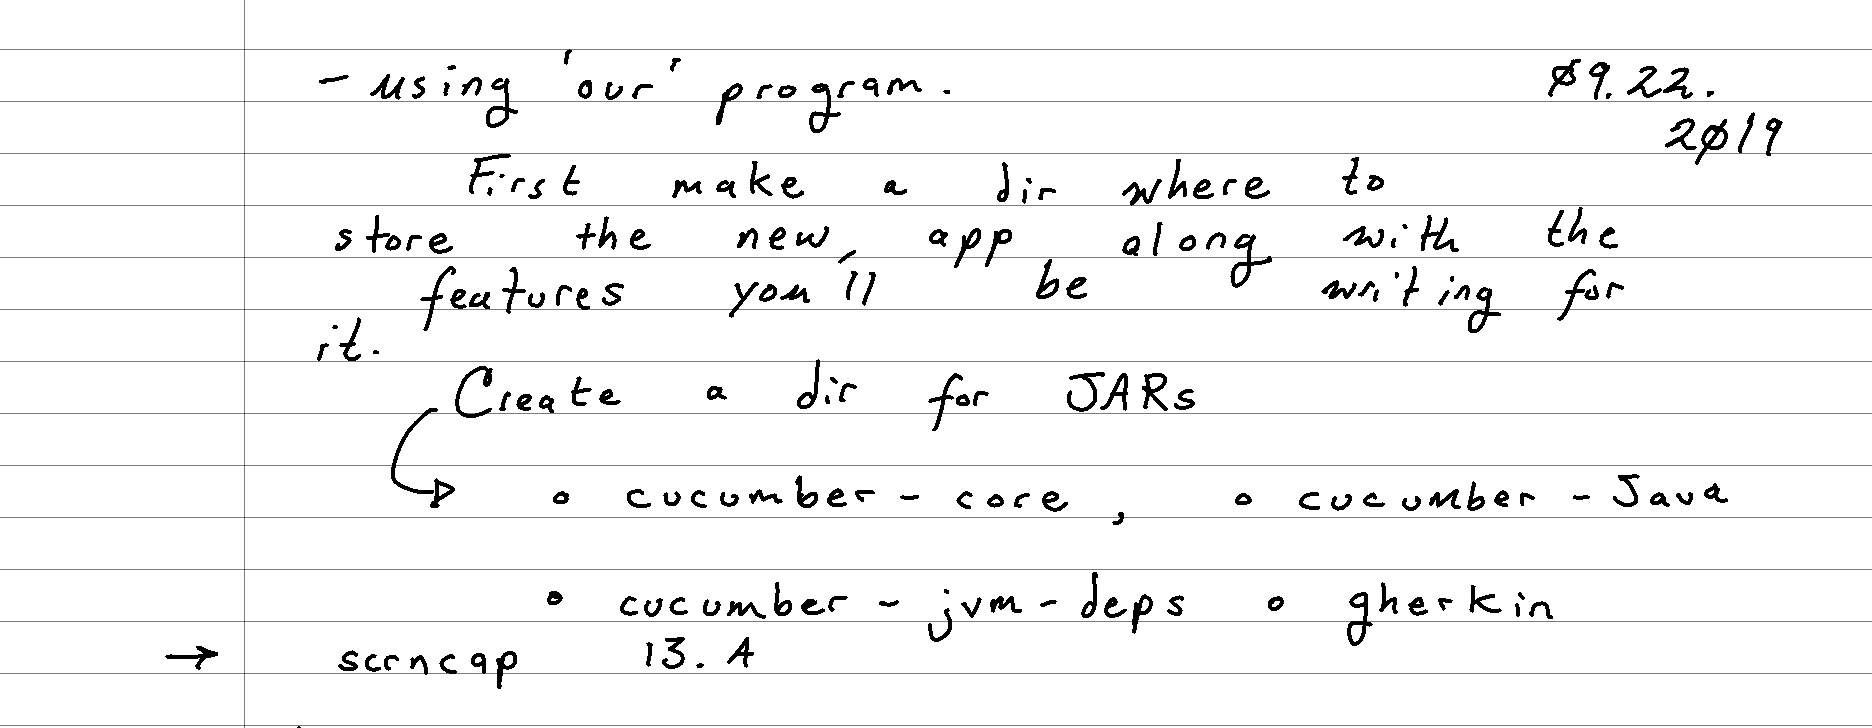 - using 'our' program. Ø9.22.
2Ø19
First make a dir where to
store the new app along with the
features you'll be writing for
it.
Create a dir for JARs
→ ∘ cucumber - core , ∘ cucumber - Java
∘ cucumber - jvm - deps ∘ gherkin
→ scrncap 13. A